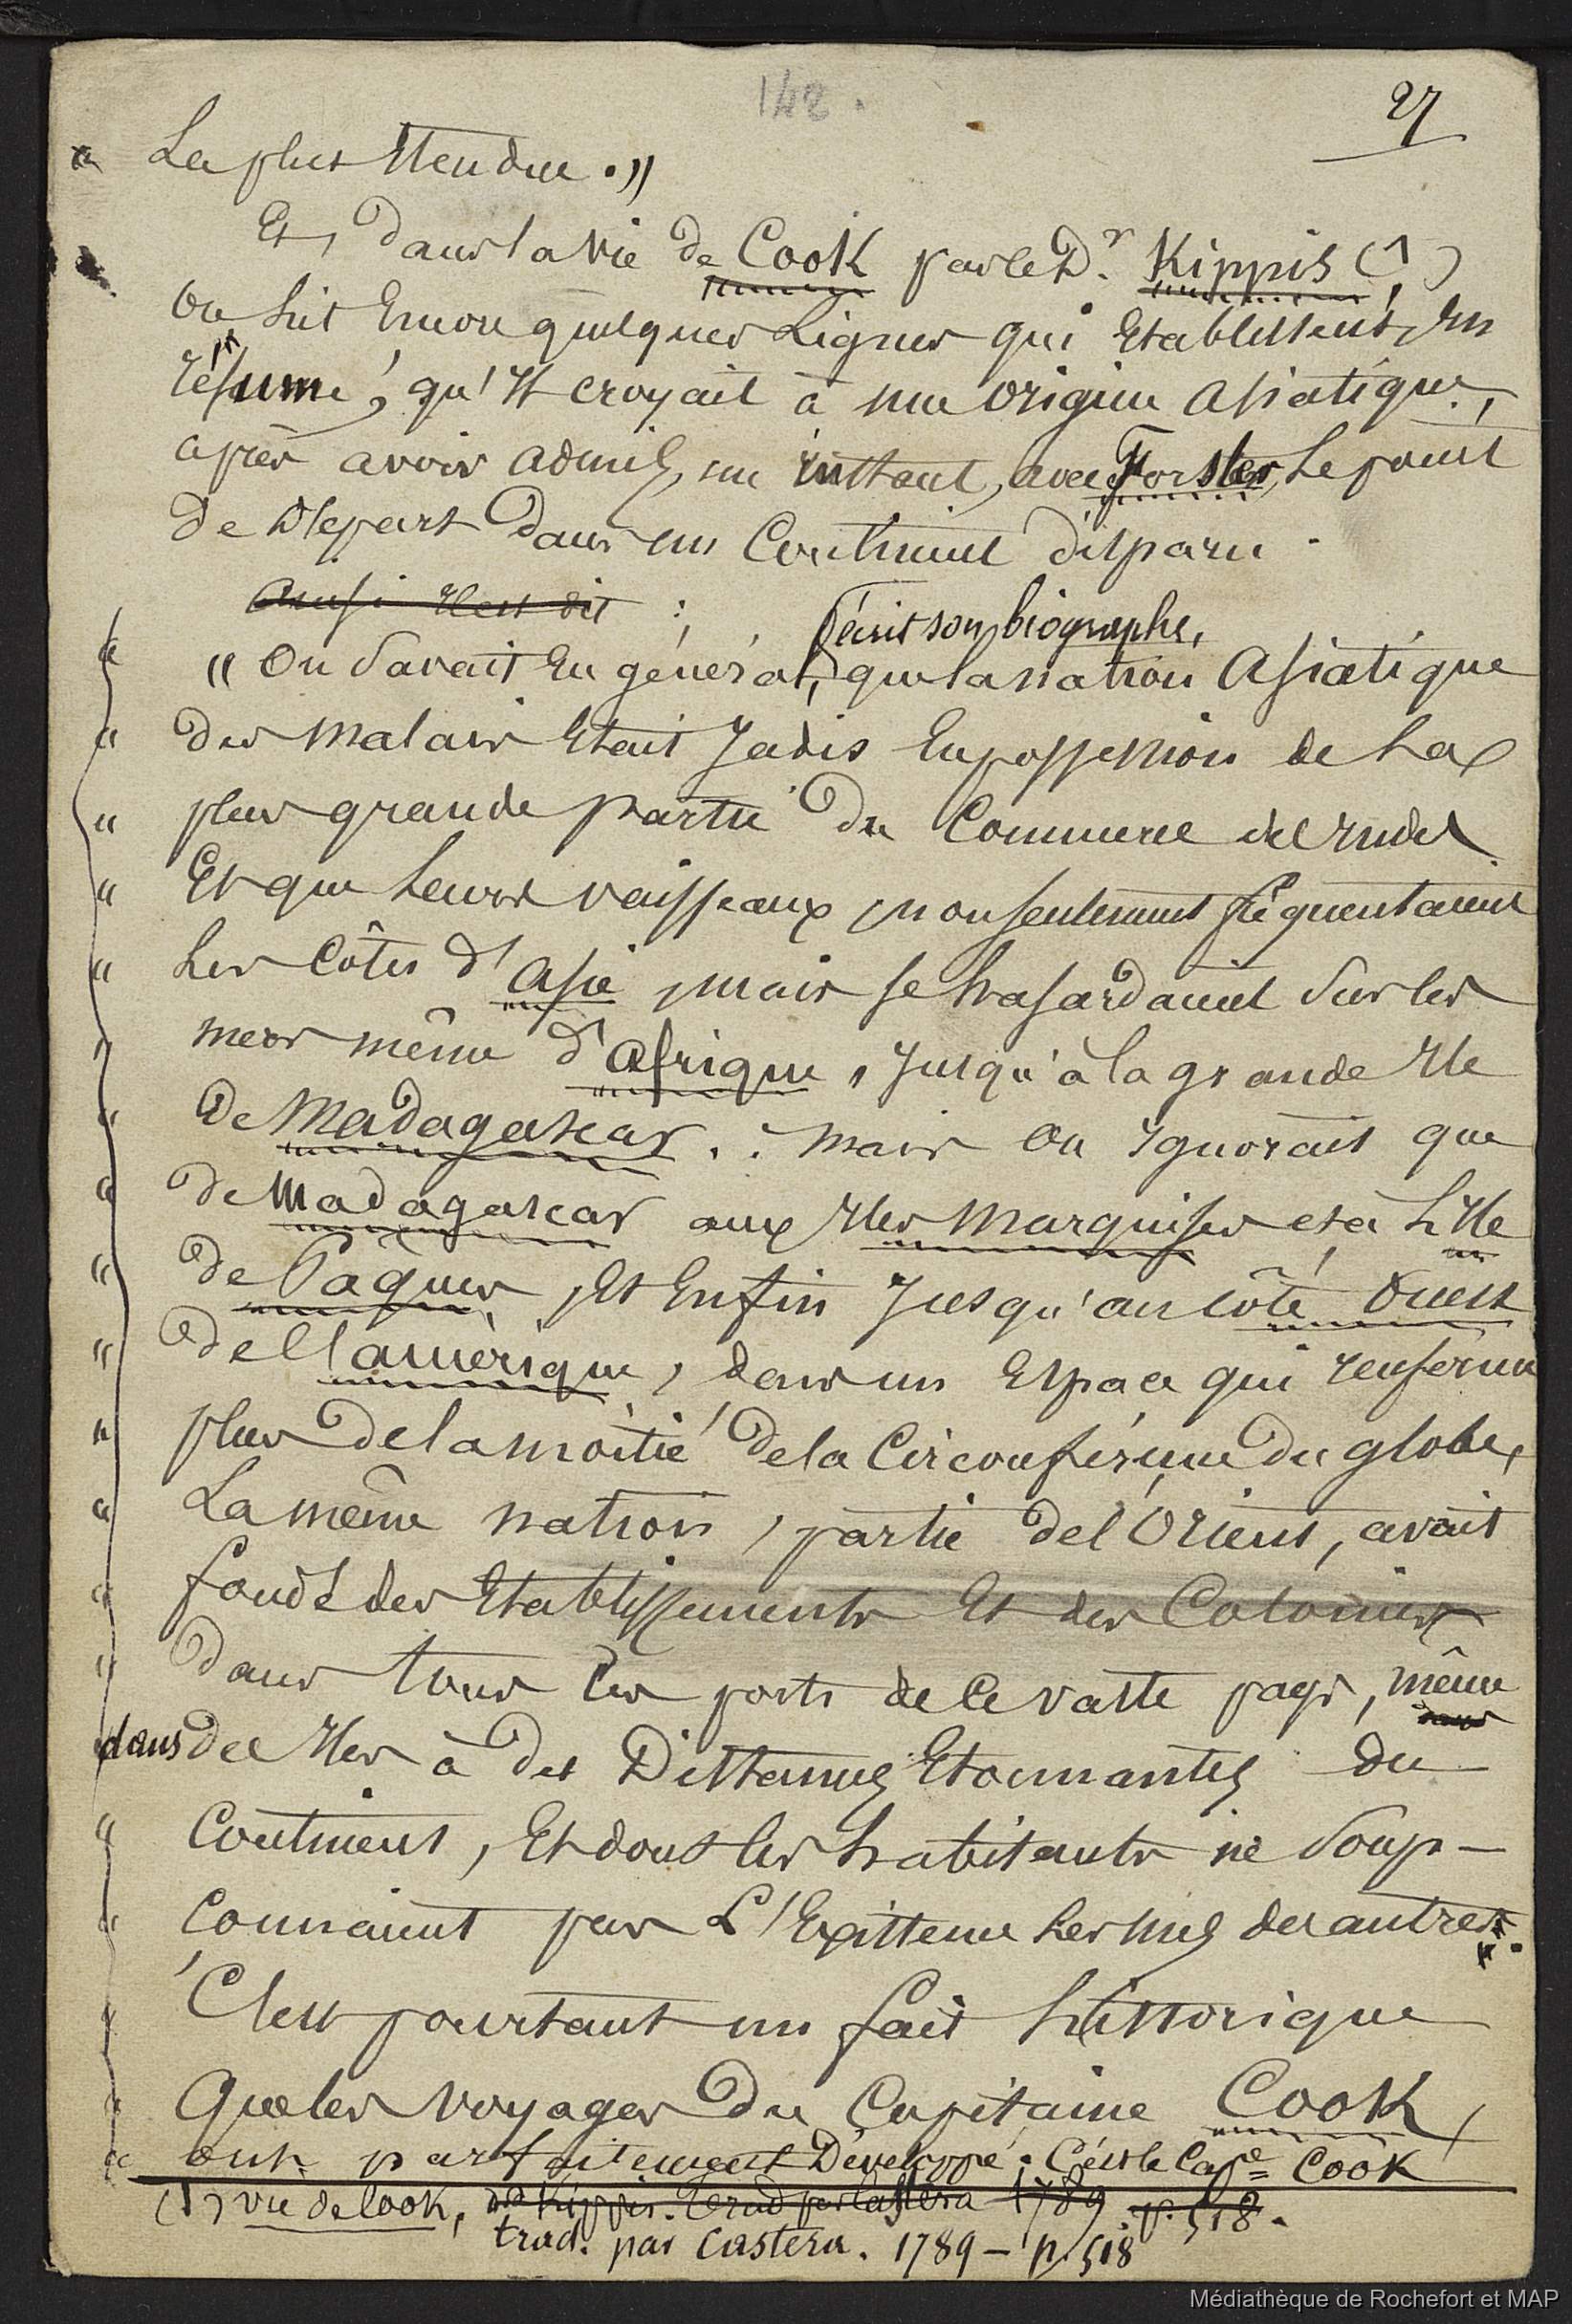 142.
27
« La plus Etendue. »
Et, Dans la vie de Cook par le Dr. Kippis (1)
on lit Encore quelques Lignes qui Etablissent, En
résumé, qu'Il croyait à une Origine Asiatique,
après avoir admis, un instant, avec Forster, Le point
de Départ Dans un Continent disparu.
Ainsi Il est dit :
écrit son biographe,
« " On Savait En général, que la nation Asiatique
« des Malais Etait Jadis En possession de La
« plus grande partie Du Commerce des Indes
« Et que Leurs vaisseaux, non seulement fréquentaient
« Les Côtes d'Asie, mais se hasardaient Sur les
" mers même d'Afrique, Jusqu'à la grande Ile
" De Madagascar. : mais On Ignorait que
« de Madagascar aux Iles Marquises et à L'Ile
« de Pâques, Et Enfin Jusqu'au côté Ouest
« De l'Amérique, dans un Espace qui renferme
" plus De la moitié De la Circonférence Du globe,
« La même nation, partie De l'Orient, avait
« fondé des Etablissements Et des Colonies
" Dans tous les ports de Ce vaste pays, même
dans des Iles à des Distances Etonnantes du
« Continent, Et dont les habitants ne Soup-
« çonnaient pas L'Existence Les uns des autres.
" C'est pourtant un fait historique
« Que les voyages Du Capitaine Cook,
« ont parfaitement Développé. C'est le Cape Cook
(1) vie de Cook, Dr Kippis. Trad par Castera 1789. p. 518.
trad. par Castera. 1789 - p. 518
Médiathèque de Rochefort et MAP